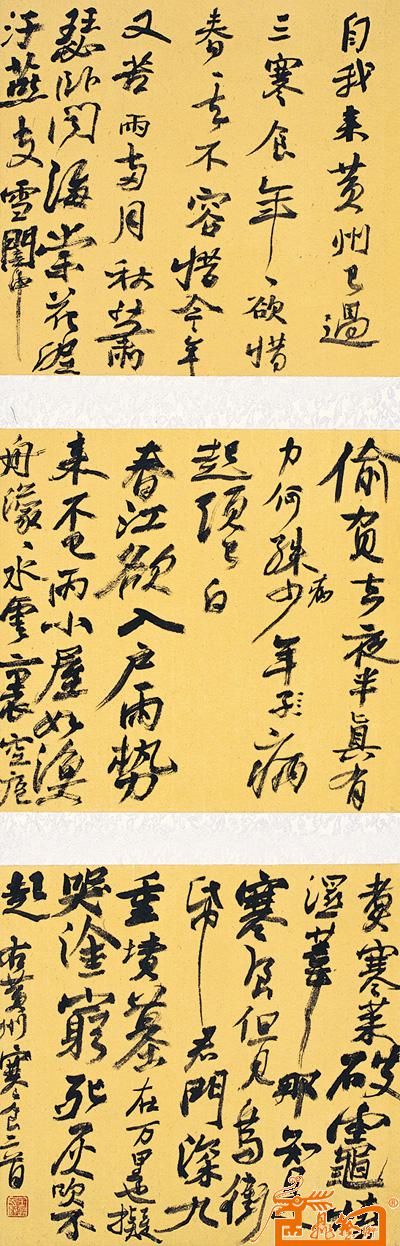 自我来黄州已過
三寒食年、欲惜
春、去不容惜今年
又苦雨两月秋萧
瑟卧闻海棠花泥
污燕支雪闇中
偷负去夜半真有
力何殊少年子病
起须已白
春江欲入户雨势
来不已雨小屋如渔
舟濛、水云里空庖
煮寒菜破灶烧
湿苇那知是
寒食但见乌衔
纸君门深九
重坟墓在万里也拟
哭涂穷死灰吹不
起 右黄州寒食二首